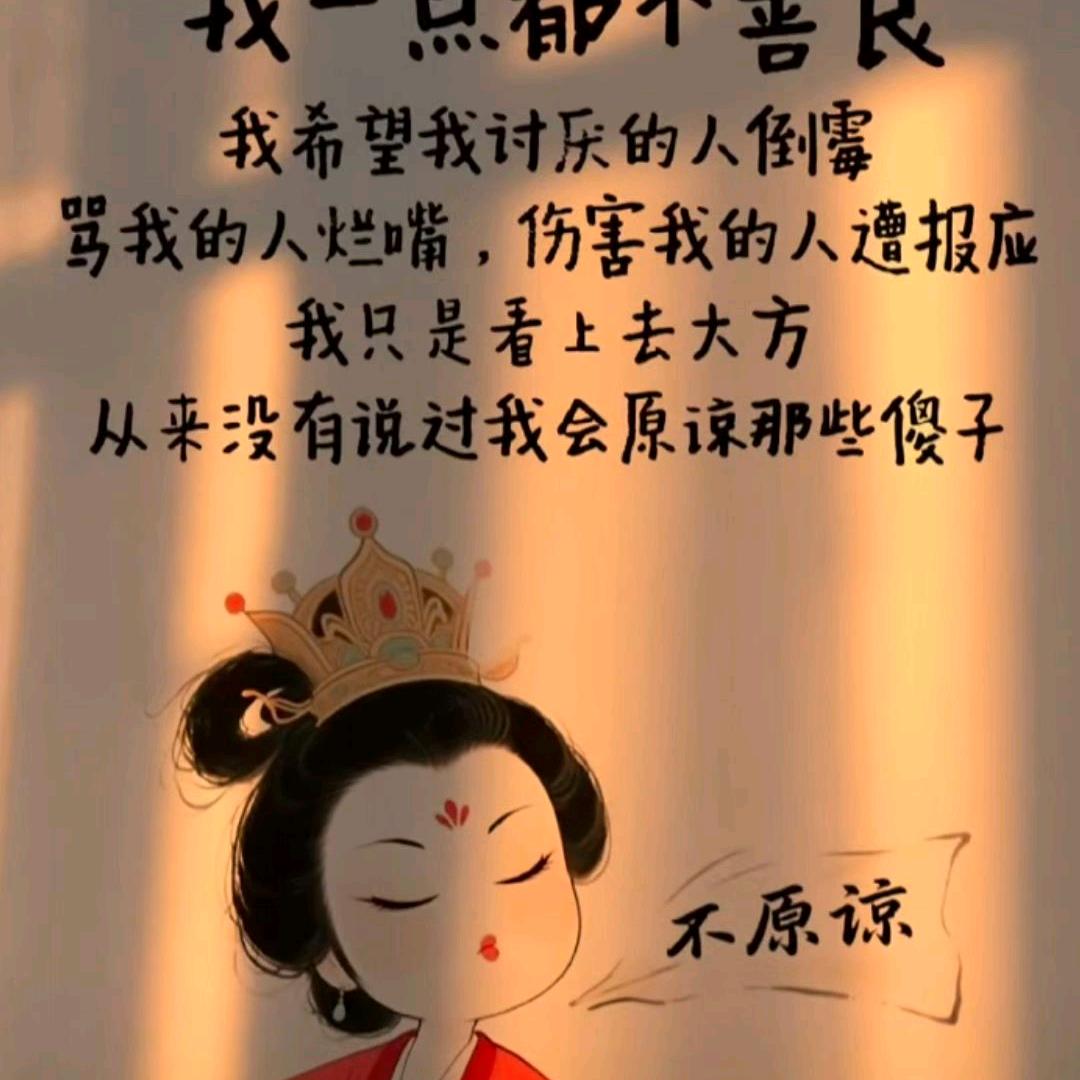 我一点都不善良
我希望我讨厌的人倒霉
骂我的人烂嘴，伤害我的人遭报应
我只是看上去大方
从来没有说过我会原谅那些傻子
不原谅